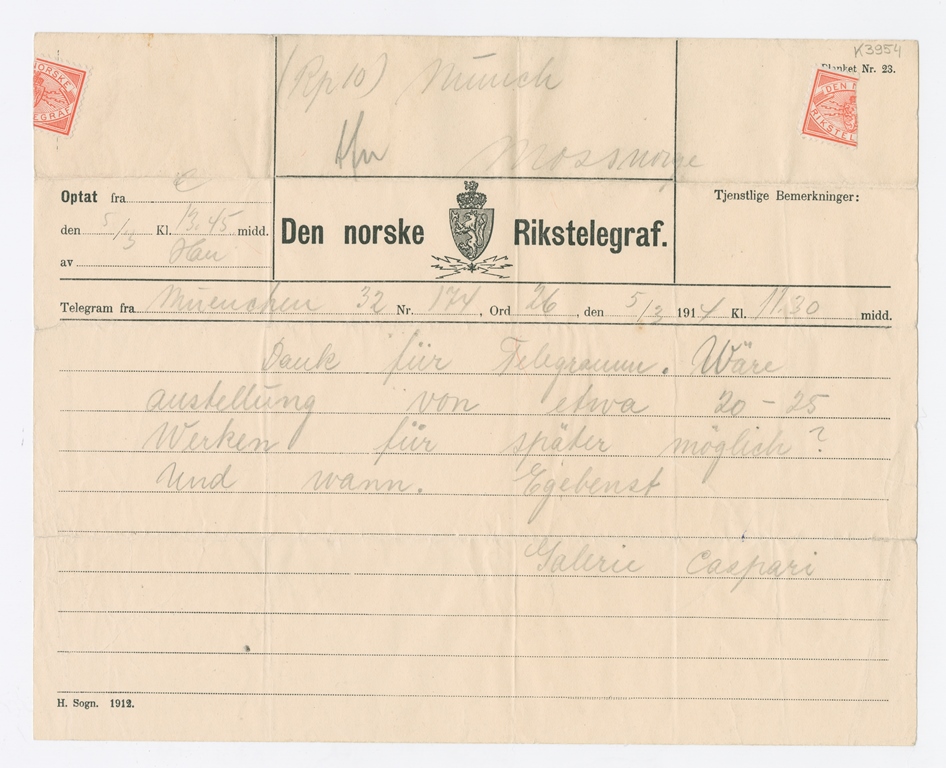 K3954
Blanket Nr. 23.
NORSKE
EGRAF
DEN N
RIKSTEL
(Rp 10) Munch
Mossnorge
Optat fra
den 5/3 Kl. 13.45 midd.
av
Den norske Rikstelegraf.
Tjenstlige Bemerkninger:
Telegram fra Muenchen 32 Nr. 174, Ord 26, den 5/3 1914 Kl. 11.30 midd.
Dank für Telegramm. Wäre
austellung von etwa 20-25
Werken für später möglich?
Und wann. Egebenst
Galerie Caspari
H. Sogn. 1912.